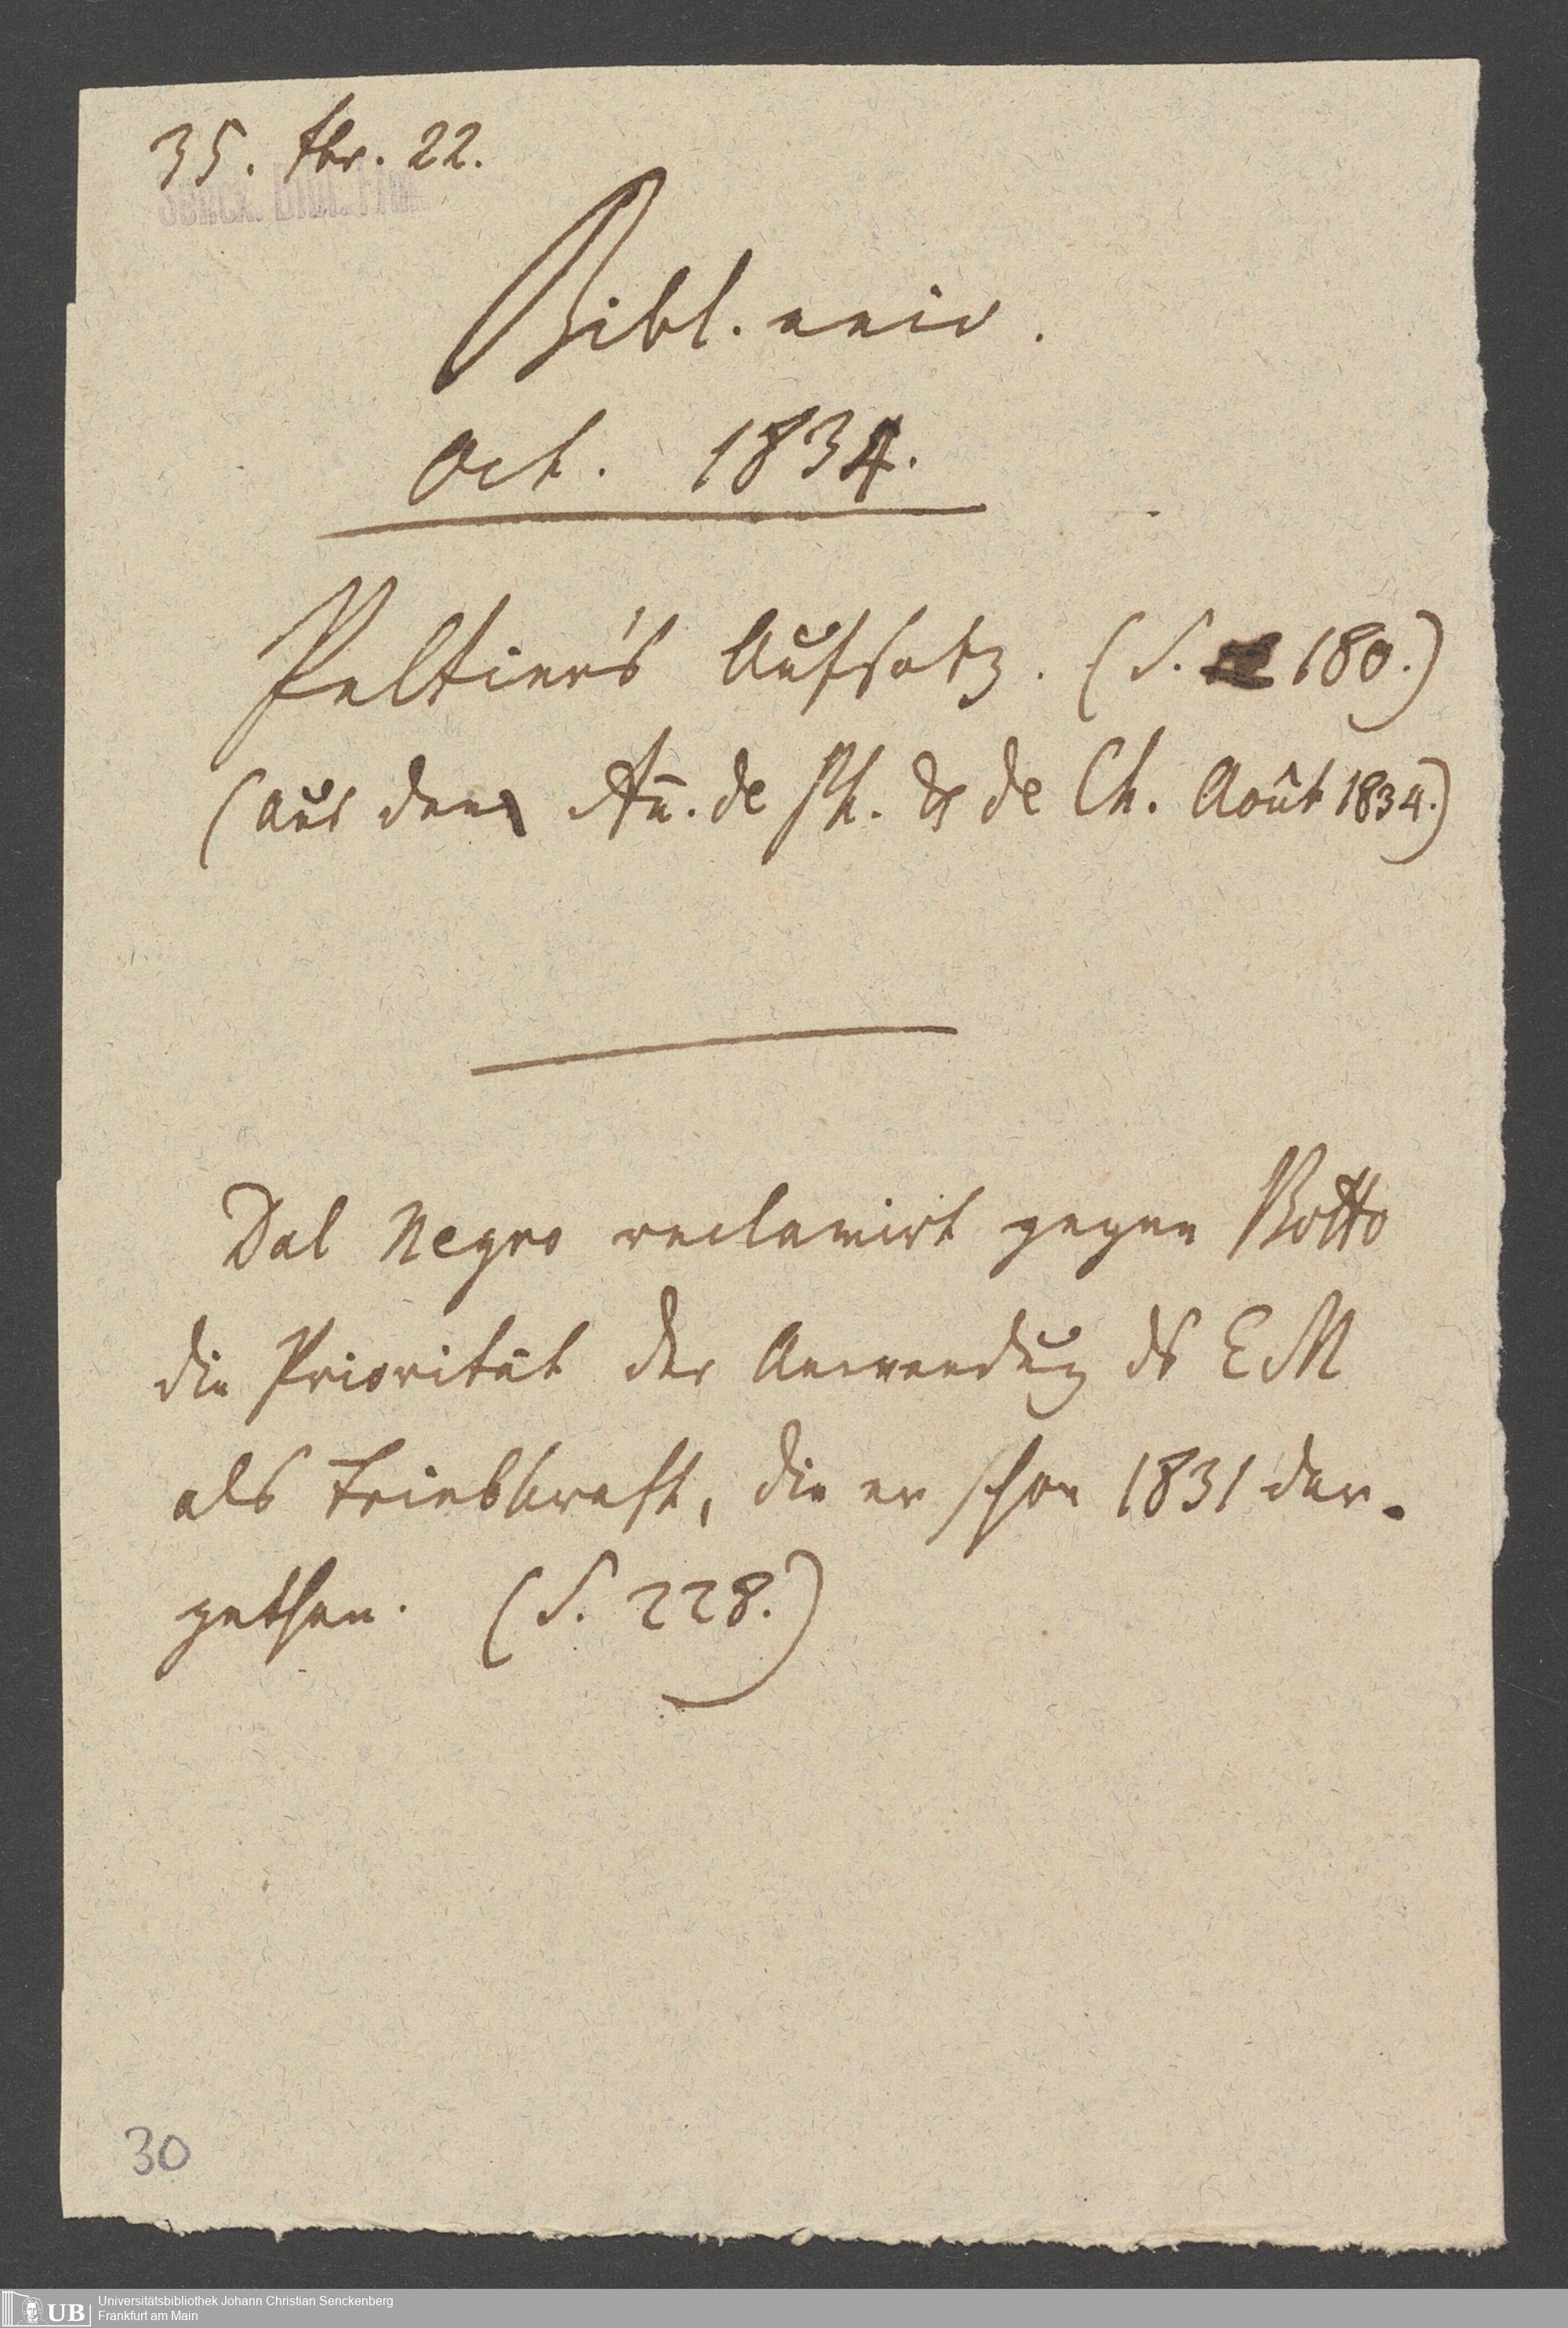 35. Fbr. 22.
Senck. Bibl. Ffm.
Bibl. univ.
Oct. 1834.
Peltier's Aufsatz. (S. 180.)
(aus den An̄. de Ph. & de Ch. Août 1834.)
Dal Negro reclamirt gegen Botto
die Priorität der Anwendug ds EM
als Triebkraft, die er schon 1831 dar-
gethan. (S. 228.)
30
UB
Universitätsbibliothek Johann Christian Senckenberg
Frankfurt am Main